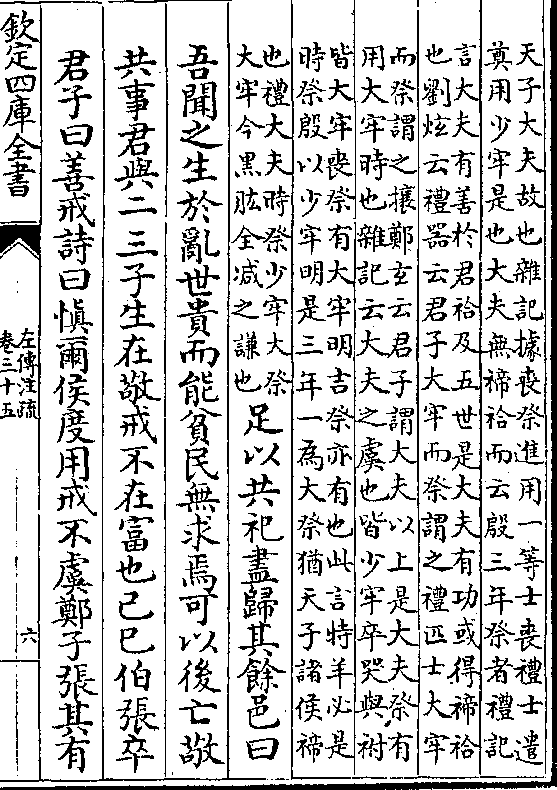 天子大夫故也雜記據喪祭進用一等士喪禮士遣
奠用少牢是也大夫無禘祫而云殷三年祭者禮記
言大夫有善於君祫及五世是大夫有功或得禘祫
也劉炫云禮器云君子大牢而祭謂之禮匹士大牢
而祭謂之攘鄭玄云君子謂大夫以上是大夫祭有
用大牢時也雜記云大夫之虞也皆少牢卒哭與祔
皆大牢喪祭有大牢明吉祭亦有也此言特羊必是
時祭殷以少牢明是三年一為大祭猶天子諸侯禘
也禮大夫時祭少牢大祭
大牢今黒肱全减之謙也
足以共祀盡歸其餘邑曰
吾聞之生於亂世貴而能貧民無求焉可以後亡敬
共事君與二三子生在敬戒不在富也己巳伯張卒
君子曰善戒詩曰慎爾侯度用戒不虞鄭子張其有
欽定四庫全書
左傳注疏
卷三十五
六